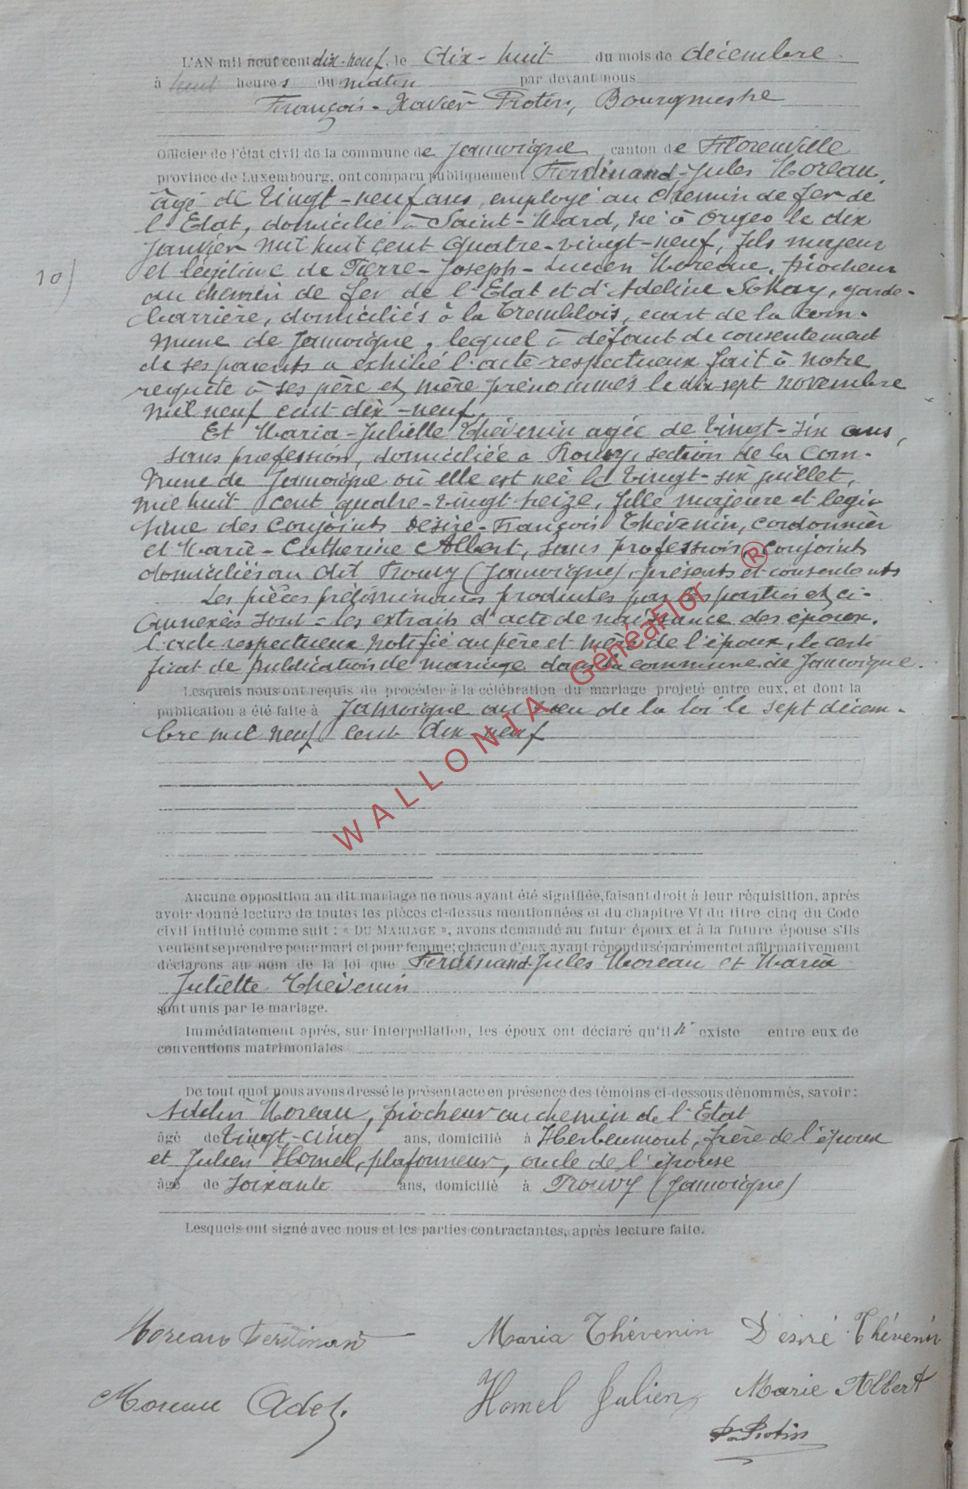 L'AN mil neuf cent dix-neuf, le dix-huit du mois de décembre
à huit heures du matin par devant nous
François-Xavier Protin, Bourgmestre
Officier de l'état civil de la commune de Jamoigne, canton de Florenville
province de Luxembourg, ont comparu publiquement Ferdinand-Jules Moreau,
âgé de vingt-neuf ans, employé au chemin de fer de
l'Etat, domicilié à Saint-Mard, né à Orgeo le dix
janvier mil huit cent quatre-vingt-neuf, fils majeur
10)
et légitime de Pierre-Joseph-Lucien Moreau, piocheur
au chemin de fer de l'Etat et d'Adeline garde-
barrière, domiciliés à la Tremblois, écart de la com-
mune de Jamoigne, lequel à défaut de consentement
de ses parents a exhibé l'acte respectueux fait à notre
requête à ses père et mère prénommés le dix sept novembre
mil neuf cent dix-neuf.
Et Maria-Juliette Thévenin agée de vingt-six ans,
sans profession, domiciliée à Prouvy, section de la com-
mune de Jamoigne où elle est née le vingt-six juillet,
mil huit cent quatre-vingt treize, fille majeure et légit-
ime des conjoints Désiré-François Thévenin, cordonnier
et Marie-Catherine Albert, sans profession, conjoints
domiciliés au dit Prouvy (Jamoigne), présents et consentants
Les pièces préliminaires produites par les parties et ci-
annexés sont = les extraits d'acte de naissance des époux,
l'acte respectueux notifié au père et mère de l'époux, le certi
ficat de publication de mariage dans la commune de Jamoigne.
Lesquels nous ont requis de procéder à la célébration du mariage projeté entre eux, et dont la
publication a été faite à Jamoigne au vœu de la loi le sept décem-
bre mil neuf cent dix neuf
WALLONIA GénéaFlor ®
Aucune opposition au dit mariage ne nous ayant été signifiée, faisant droit à leur réquisition, après
avoir donné lecture de toutes les pièces ci-dessus mentionnées et du chapitre VI du titre cinq du Code
civil intitulé comme suit : « DU MARIAGE », avons demandé au futur époux et à la future épouse s'ils
veulent se prendre pour mari et pour femme; chacun d'eux ayant répondu séparément et affirmativement
déclarons au nom de la loi que Ferdinand-Jules Moreau et Maria
Juliette Thévenin
sont unis par le mariage.
Immédiatement après, sur interpellation, les époux ont déclaré qu'il n'existe entre eux de
conventions matrimoniales
De tout quoi nous avons dressé le présent acte en présence des témoins ci-dessous dénommés, savoir :
Moreau, piocheur au chemin de l'Etat
âgé de vingt-cinq ans, domicilié à Herbeumont, frère de l'époux
et Julien Homel, plafonneur, oncle de l'épouse
âgé de soixante ans, domicilié à Prouvy (Jamoigne)
Lesquels ont signé avec nous et les parties contractantes, après lecture faite.
Moreau Ferdinand Maria Thévenin Désiré Thévenin
Moreau Homel Julien Marie Albert
Protin